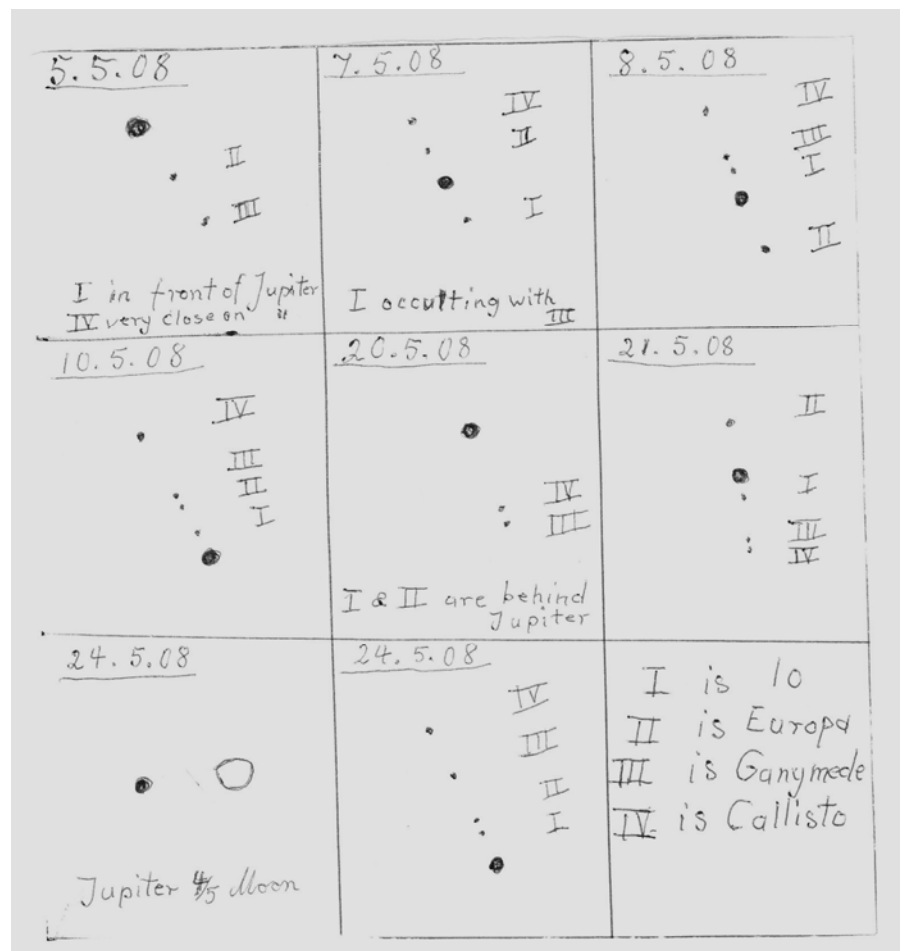 5.5.08
II
III
I in front of Jupiter
IV very close on "
7.5.08
IV
II
I
I occulting with
III
8.5.08
IV
III
I
II
10.5.08
IV
III
II
I
20.5.08
IV
III
I & II are behind
Jupiter
21.5.08
II
I
III
IV
24.5.08
Jupiter 4/5 Moon
24.5.08
IV
III
II
I
I is Io
II is Europa
III is Ganymede
IV is Callisto